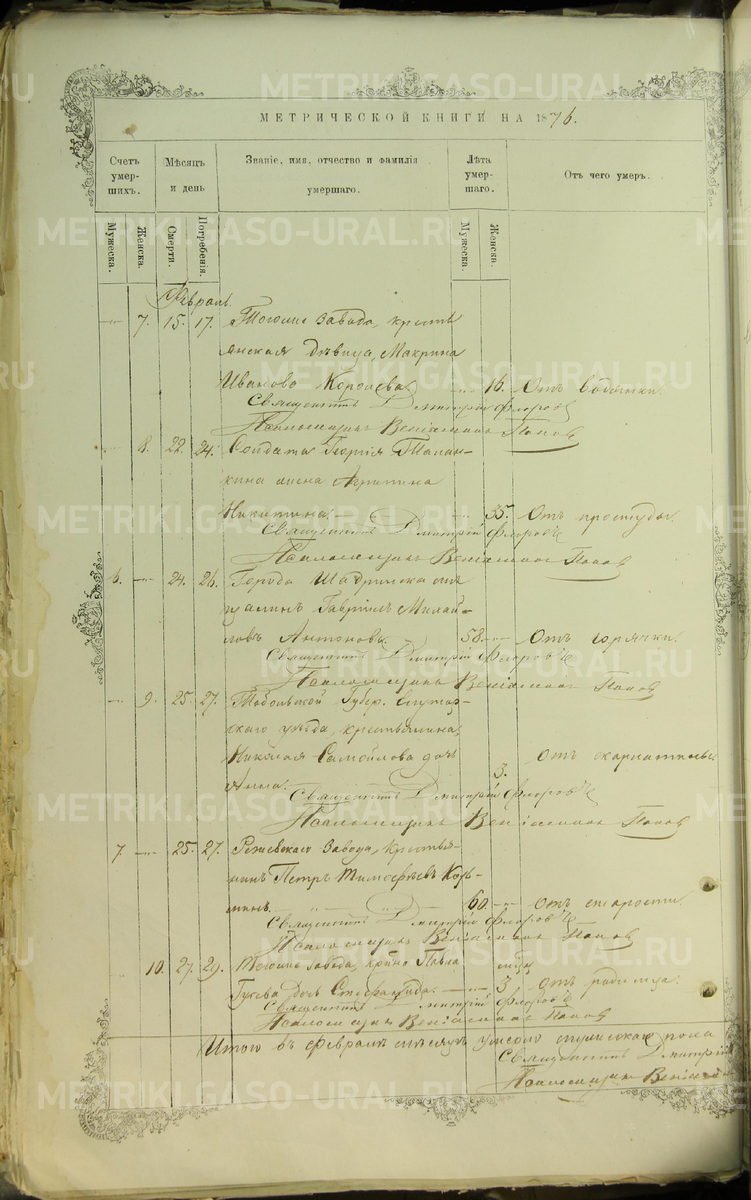 МЕТРИЧЕСКОЙ КНИГИ НА 1876.
Счетъ умерших.
Мѣсяцъ и день
Званіе, имя, отчество и фамилія умершаго.
Лѣта умершаго.
Отъ чего умеръ.
Мужеска.
Женска.
Смерти.
Погребенія.
Мужеска.
Женска.
Февраль
7. 15. 17. Тогоже завода, кресть
янская дѣвица, Макрина
Иванова Королева 16. Отъ водянки.
Священникъ Дмитрій Флоровъ
Псаломщикъ Веніаминъ Поповъ
8. 22. 24. Солдата Георгія Талан-
кина жена Агрипина
Никитина. 35. Отъ простуды.
Священникъ Дмитрій Флоровъ
Псаломщикъ Веніаминъ Поповъ
6. 24. 26. Города Шадринска мѣ
щанинъ Гавріилъ Михай-
ловъ Антоновъ. 58. Отъ горячки.
Священникъ Дмитрій Флоровъ
Псаломщикъ Веніаминъ Поповъ
9. 25. 27. Тобольской Губер.
скаго уѣзда, крестьянина
Николая Самойлова дочь
Анна. 3. Отъ скарлатины
Священникъ Дмитрій Флоровъ
Псаломщикъ Веніаминъ Поповъ
7. 25. 27. Режевскаго завода, крестья-
нинъ Петръ Тимофѣевъ Корь-
минъ. 60. Отъ старости.
Священникъ Дмитрій Флоровъ
Псаломщикъ Веніаминъ Поповъ
10. 27. 29. Тогоже завода, Павла
Гусева дочь Стефанида. 3, отъ родимца.
Священникъ Дмитрій Флоровъ
Псаломщикъ Веніаминъ Поповъ
Итого въ февралѣ мѣсяцѣ умерло мужескаго пола
Священникъ Дмитрій
Псаломщикъ Веніами
METRIKI.GASO-URAL.RU